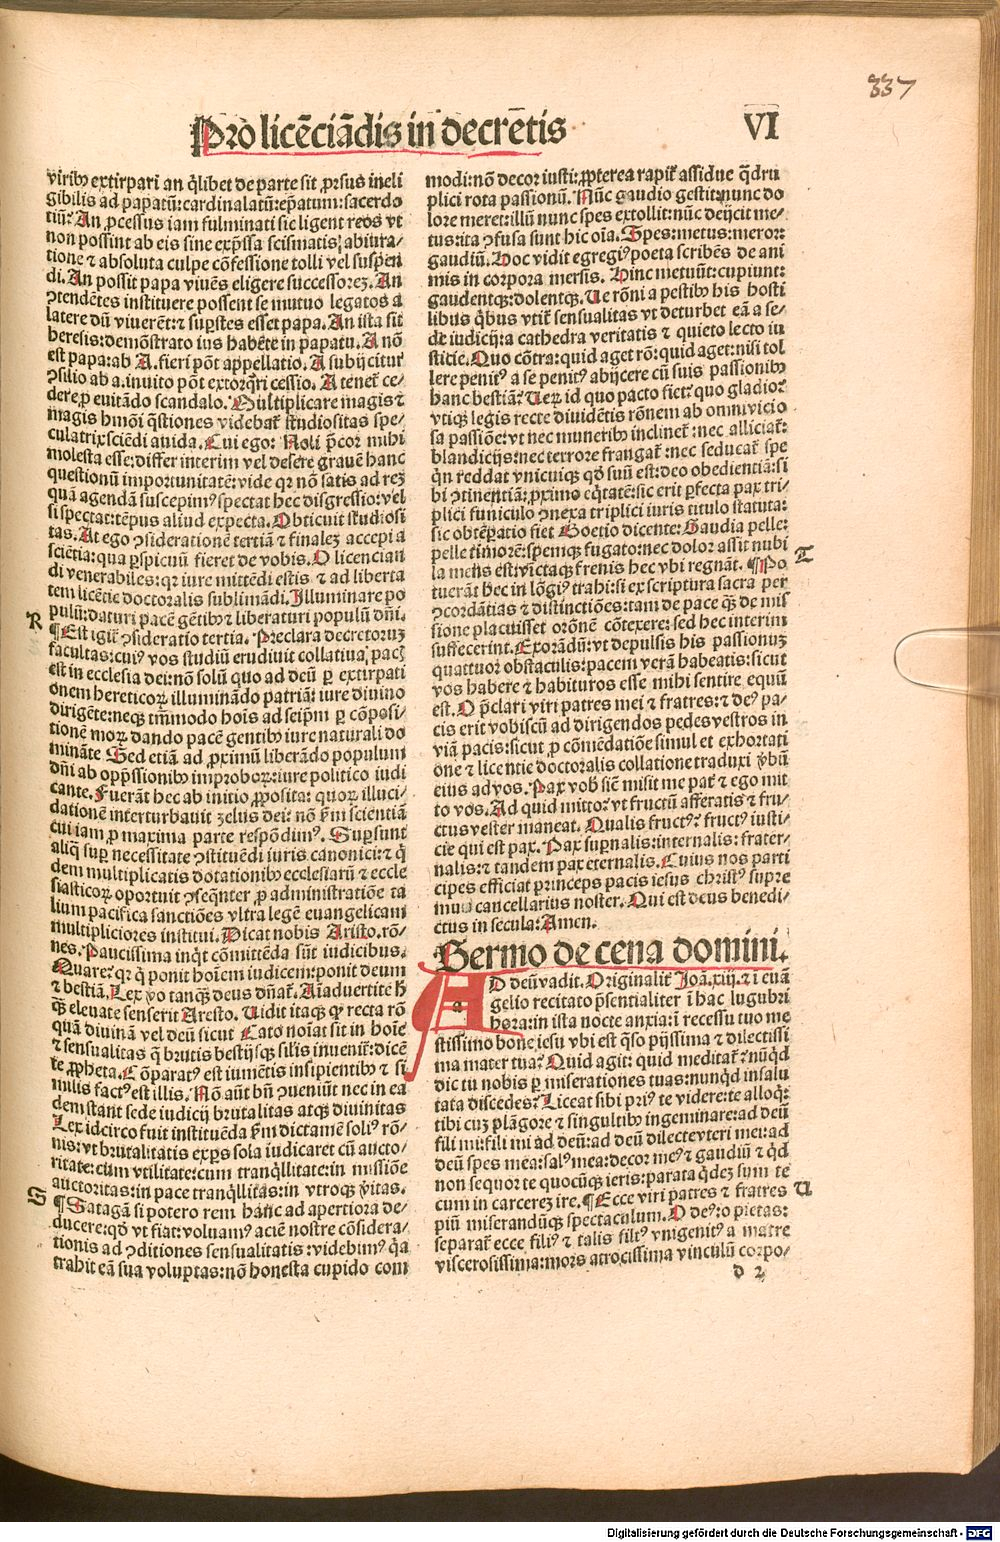 337
Pro licēciādis in decrētis
VI
viribꝰ extirpari an q̄libet de parte sit ꝓrsus ineli
gibilis ad papatū: cardinalatū: ep̄atum: sacerdo
tiū? An ꝓcessus iam fulminati sic ligent reos vt
non possint ab eis sine exp̄ssa scismatis abiura/
tione ⁊ absoluta culpe cōfessione tolli vel suspen
di. An possit papa viuēs eligere successorēꝫ. An
ꝯtendētes instituere possent se mutuo legatos a
latere dū viuerēt: ⁊ suꝑstes esset papa. An ista sit
heresis: demōstrato ius habēte in papatu. A nō
est papa: ab A. fieri pōt appellatio. A subijcitur
ꝯsilio ab a. inuito pōt extorq̄ri cessio. A tenet̄ ce-
dere ꝓ euitādo scandalo. Multiplicare magis ⁊
magis hmōi q̄stiones videbat̄ studiositas spe/
culatrix sciēdi auida. Cui ego: Noli p̄cor mihi
molesta esse: differ interim vel desere grauē hanc
questionū importunitatē: vide qꝛ nō satis ad reꝫ
quā agendā suscepimꝰ spectat hec disgressio: vel
si spectat: tēpus aliud expecta. Obticuit studiosi
tas. At ego ꝯsiderationē tertiā ⁊ finaleꝫ accepi a
sciētia: qua ꝑspicuū fieret de vobis. O licencian
di venerabiles: qꝛ iure mittēdi estis ⁊ ad liberta
tem licētie doctoralis sublimādi. Illuminare po
R
pulū: daturi pacē gētibꝰ ⁊ liberaturi populū dn̄i.
¶ Est igit̄ ꝯsideratio tertia. Preclara decretoruꝫ
facultas: cuiꝰ vos studiū erudiuit collatiua pacꝭ
est in ecclesia dei: nō solū quo ad deū ꝑ extirpati
onem hereticoꝝ illuminādo patriā: iure diuino
dirigēte: neqꝫ tm̄modo hoīs ad seip̄m ꝑ cōposi/
tionē moꝝ dando pacē gentibꝰ iure naturali do
mināte Sed etiā ad ꝓximū liberādo populum
dn̄i ab opp̄ssionibꝰ improboꝝ: iure politico iudi
cante. Fuerāt hec ab initio ꝓposita: quoꝝ illuci/
dationem interturbauit zelus dei: nō ẜm scientiā
cui iam ꝓ maxima parte respōdimꝰ. Suꝑsunt
aliq̄ suꝑ necessitate ꝯstituēdi iuris canonici: ⁊ q̄
dem multiplicatis dotationibꝰ ecclesiarū ⁊ eccle
siasticoꝝ oportuit ꝯseq̄nter ꝓ administratiōe ta
lium pacifica sanctiōes vltra legē euangelicam
multipliciores institui. Dicat nobis Aristo. rō/
nes. Paucissima inq̄t cōmittēda sūt iudicibus.
Quare? qꝛ q̄ ponit hoīem iudicem: ponit deum
⁊ bestiā. Lex ꝟo tanqꝫ deus dn̄at̄. Aīaduertite h̄
qꝫ eleuate senserit Aresto. Uidit itaqꝫ qꝛ recta rō
quā diuinā vel deū sicut Cato noīat sit in hoīe
⁊ sensualitas q̄ brutis bestijsqꝫ silis inuenit̄: dicē
te ꝓpheta. Cōparatꝰ est iumētis insipientibꝰ ⁊ si
milis factꝰ est illis. Nō aūt bn̄ ꝯueniūt nec in ea
dem stant sede iudicij brutalitas atqꝫ diuinitas
Lex idcirco fuit instituēda ẜm dictamē soliꝰ rō/
nis: vt brutalitatis exꝑs sola iudicaret cū aucto/
ritate: cum vtilitate: cum tranq̄llitate: in missiōe
auctoritas: in pace tranq̄llitas: in vtroqꝫ ꝟitas.
S
¶ Satagā si potero rem hanc ad apertiora de/
ducere: qd̄ vt fiat: voluamꝰ aciē nostre cōsidera/
tionis ad ꝯditiones sensualitatis: videbimꝰ q̄a
trahit eā sua voluptas: nō honesta cupido com
modi: nō decor iusti: ꝓpterea rapit̄ assidue q̄dru
plici rota passionū. Nūc gaudio gestit: nunc do
lore meret: illū nunc spes extollit: nūc deijcit me/
tus: ita ꝯfusa sunt hic oīa. Spes: metus: meror:
gaudiū. Hoc vidit egregiꝰ poeta scribēs de ani
mis in corpora mersis. Hinc metuūt: cupiunt:
gaudentqꝫ: dolentqꝫ. Ue rōni a pestibꝰ his hosti
libus q̄bus vtit̄ sensualitas vt deturbet eā a se/
de iudicij: a cathedra veritatis ⁊ quieto lecto iu
sticie. Quo cōtra: quid aget rō: quid aget: nisi tol
lere penitꝰ a se penitꝰ abijcere cū suis passionibꝰ
hanc bestiā? Ueꝝ id quo pacto fiet: quo gladio?
vtiqꝫ legis recte diuidētis rōnem ab omni vicio
sa passiōe: vt nec muneribꝰ inclinet̄: nec alliciat̄:
blandicijs: nec terrore frangat̄: nec seducat̄ spe
q̄n reddat vnicuiqꝫ qd̄ suū est: deo obedientiā: si
bi ꝯtinentiā: ꝓximo eq̄tatē: sic erit ꝑfecta pax tri/
plici funiculo ꝯnexa triplici iuris titulo statuta:
sic obtēꝑatio fiet Boetio dicente: Gaudia pelle:
pelle timorē: spemqꝫ fugato: nec dolor assit nubi
T
la mens est: victaqꝫ frenis hec vbi regnāt. ¶ Po
tuerāt hec in lōgiꝰ trahi: si ex scriptura sacra per
ꝯcordātias ⁊ distinctiōes: tam de pace qꝫ de mis
sione placuisset orōnē cōtexere: sed hec interim
suffecerint. Exorādū: vt depulsis his passionuꝫ
quattuor obstaculis: pacem verā habeatis: sicut
vos habere ⁊ habituros esse mihi sentire equū
est. O p̄clari viri patres mei ⁊ fratres: ⁊ deꝰ pa/
cis erit vobiscū ad dirigendos pedes vestros in
viā pacis: sicut ꝓ cōmēdatiōe simul et exhortati
one ⁊ licentie doctoralis collatione traduxi ꝟbū
eius ad vos. Pax vob̄ sic̄ misit me pat̄ ⁊ ego mit
to vos. Ad quid mitto? vt fructū afferatis ⁊ fru/
ctus vester maneat. Qualis fructꝰ? fructꝰ iusti/
cie qui est pax. Pax suꝑnalis: internalis: frater/
nalis: ⁊ tandem pax eternalis. Cuius nos parti
cipes efficiat princeps pacis iesus christꝰ supre
mus cancellarius noster. Qui est deus benedi/
ctus in secula: Amen.
Sermo de cena domini.
AD deū vadit. Originalit̄ Joā. xiij. ⁊ ī euā
gelio recitato p̄sentialiter ī hac lugubri
hora: in ista nocte anxia: ī recessu tuo me
stissimo bone iesu vbi est q̄so pijssima ⁊ dilectissi
ma mater tua? Quid agit: quid meditat̄? nūq̄d
dic tu nobis ꝑ miserationes tuas: nunq̄d insalu
tata discedes? Liceat sibi priꝰ te videre: te alloq̄:
tibi cuꝫ plāgore ⁊ singultibꝰ ingeminare: ad deū
fili mi: fili mi ad deū: ad deū dilecte vteri mei: ad
deū spes mea: salꝰ mea: decor meꝰ ⁊ gaudiū ⁊ q̄d
non sequor te quocūqꝫ ieris: parata q̄deꝫ sum te
U
cum in carcerēꝫ ire. ¶ Ecce viri patres ⁊ fratres
piū miserandūqꝫ spectaculum. O deꝰ: o pietas:
separat̄ ecce filiꝰ ⁊ talis filiꝰ vnigenitꝰ a matre
viscerosissima: mors atrocissima vinculū corpo/
d 2
Digitalisierung gefördert durch die Deutsche Forschungsgemeinschaft - DFG